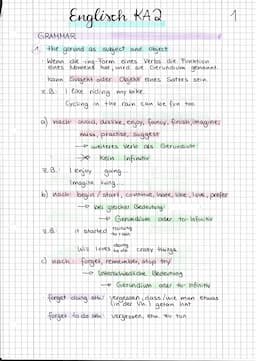 Englisch KA2
1
GRAMMAR
1. the gerund as subject and object
Wenn die -ing-Form eines Verbs die Funktion
eines Nomens hat, wird sie Gerundium genannt.
Kann Subjekt oder Objekt eines Satzes sein.
z.B.: I like riding my bike.
Cycling in the rain can be fun too.
a) nach: avoid, dislike, enjoy, fancy, finish, imagine,
miss, practise, suggest
→ weiteres Verb als Gerundium
→ kein Infinitiv
z.B.: I enjoy going...
Imagine living...
b) nach: begin / start, continue, hate, like, love, prefer
→ bei gleicher Bedeutung:
→ Gerundium oder to-Infinitiv
z.B. it started raining
to rain
Liz loves doing
to do crazy things.
c) nach: forget, remember, stop, try
→ Unterschiedliche Bedeutung
→ Gerundium oder to-Infinitiv
forget doing sth.: vergessen, dass/wie man etwas
(in der Vh.) getan hat
forget to do sth.: vergessen, etw. zu tun